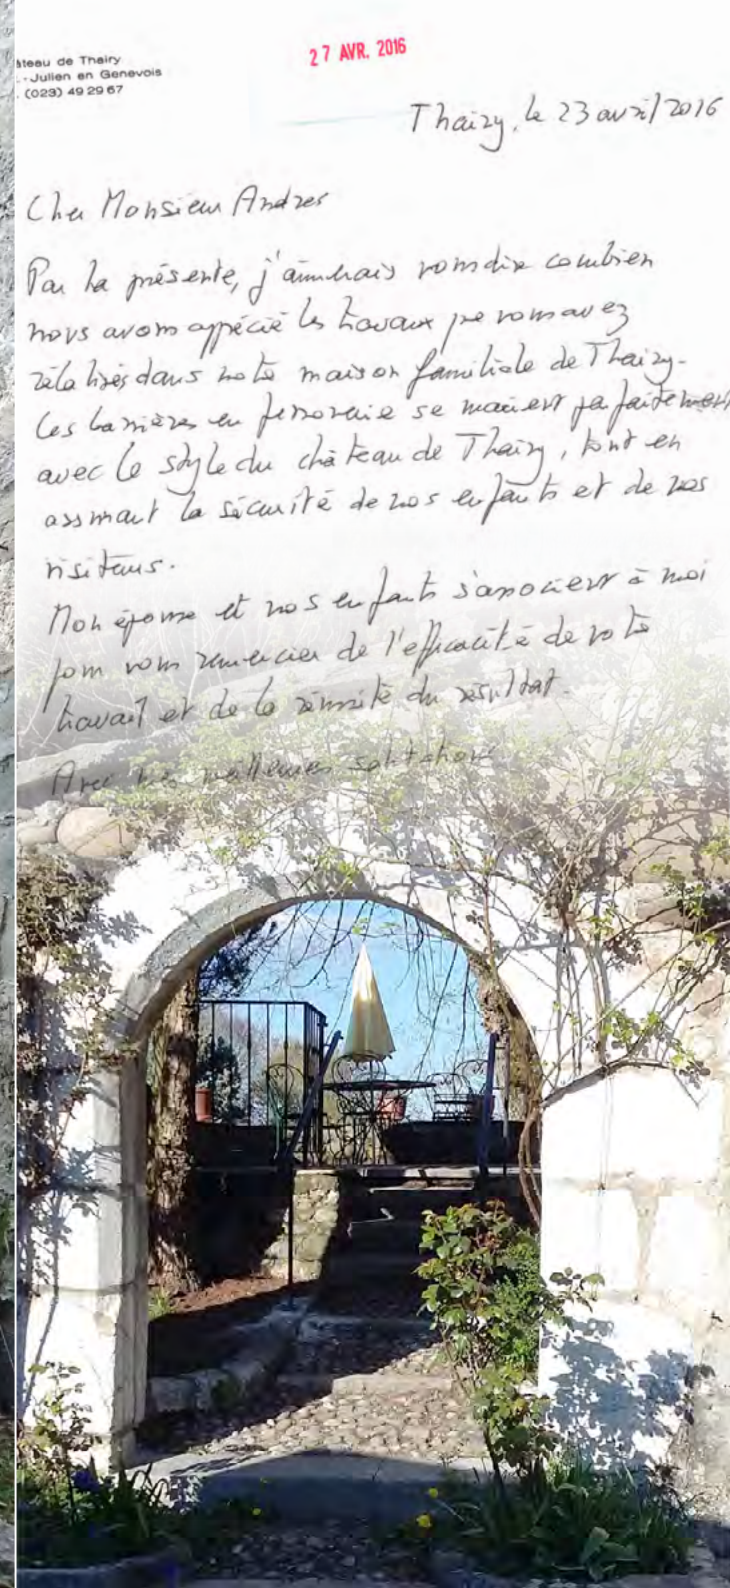 âteau de Thairy
.-Julien en Genevois
. (023) 49 29 67
27 AVR. 2016
Thairy, le 23 avril 2016
Cher Monsieur Andrer
Par la présente, j'aimerais vous dire combien
nous avons apprécié les travaux que vous avez
réalisés dans notre maison familiale de Thairy.
Les barrières en ferronnerie se marient parfaitement
avec le style du château de Thairy, tout en
assurant la sécurité de nos enfants et de nos
visiteurs.
Mon épouse et nos enfants s'associent à moi
pour vous remercier de l'efficacité de votre
travail et de la réussite du résultat.
Avec nos meilleures salutations